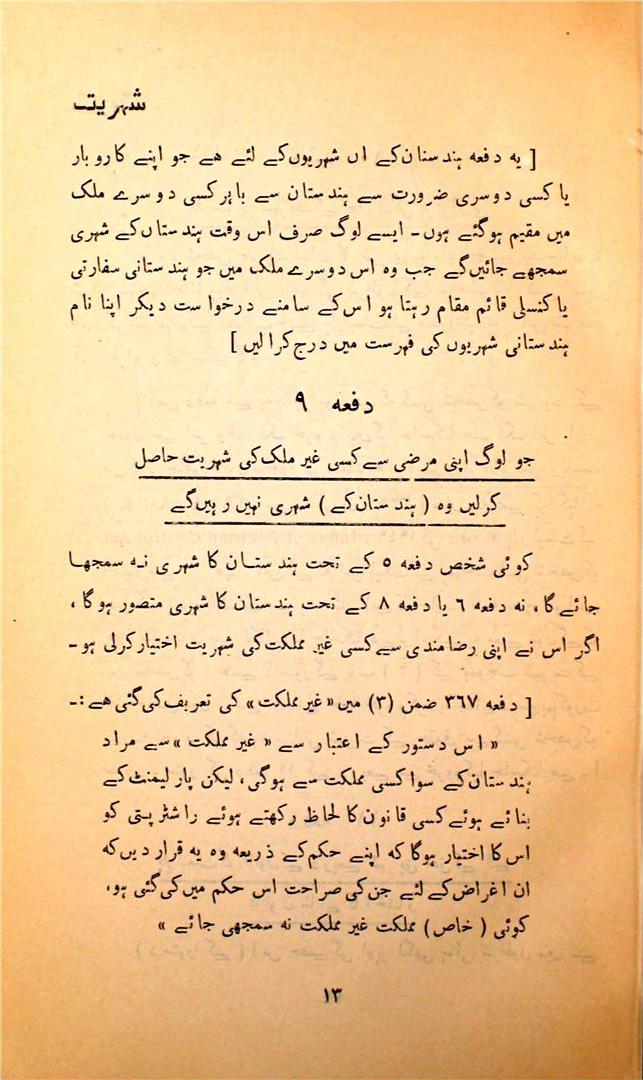 شہریت
[ یہ دفعہ ہندستان کے ان شہریوں کے لئے ہے جو اپنے کاروبار
یا کسی دوسری ضرورت سے ہندستان سے باہر کسی دوسرے ملک
میں مقیم ہوگئے ہوں ۔ ایسے لوگ صرف اس وقت ہندستان کے شہری
سمجھے جائیں گے جب وہ اس دوسرے ملک میں جو ہندستانی سفارتی
یا کنسلی قائم مقام رہتا ہو اس کے سامنے درخواست دیکر اپنا نام
ہندستانی شہریوں کی فہرست میں درج کرا لیں ]
دفعہ ۹
جو لوگ اپنی مرضی سے کسی غیر ملک کی شہریت حاصل
کرلیں وہ ( ہندستان کے ) شہری نہیں رہیں گے
کوئی شخص دفعہ ٥ کے تحت ہندستان کا شہری نہ سمجھا
جائے گا ، نہ دفعہ ٦ یا دفعہ ٨ کے تحت ہندستان کا شہری متصور ہوگا ،
اگر اس نے اپنی رضامندی سے کسی غیر مملکت کی شہریت اختیار کرلی ہو ۔
[ دفعہ ٣٦٧ ضمن (٣) میں « غیر مملکت » کی تعریف کی گئی ہے :۔
« اس دستور کے اعتبار سے « غیر مملکت » سے مراد
ہندستان کے سوا کسی مملکت سے ہوگی ، لیکن پارلیمنٹ کے
بنائے ہوئے کسی قانون کا لحاظ رکھتے ہوئے راشٹرپتی کو
اس کا اختیار ہوگا کہ اپنے حکم کے ذریعہ وہ یہ قرار دیں کہ
ان اغراض کے لئے جن کی صراحت اس حکم میں کی گئی ہو ،
کوئی ( خاص ) مملکت غیر مملکت نہ سمجھی جائے »
١٣